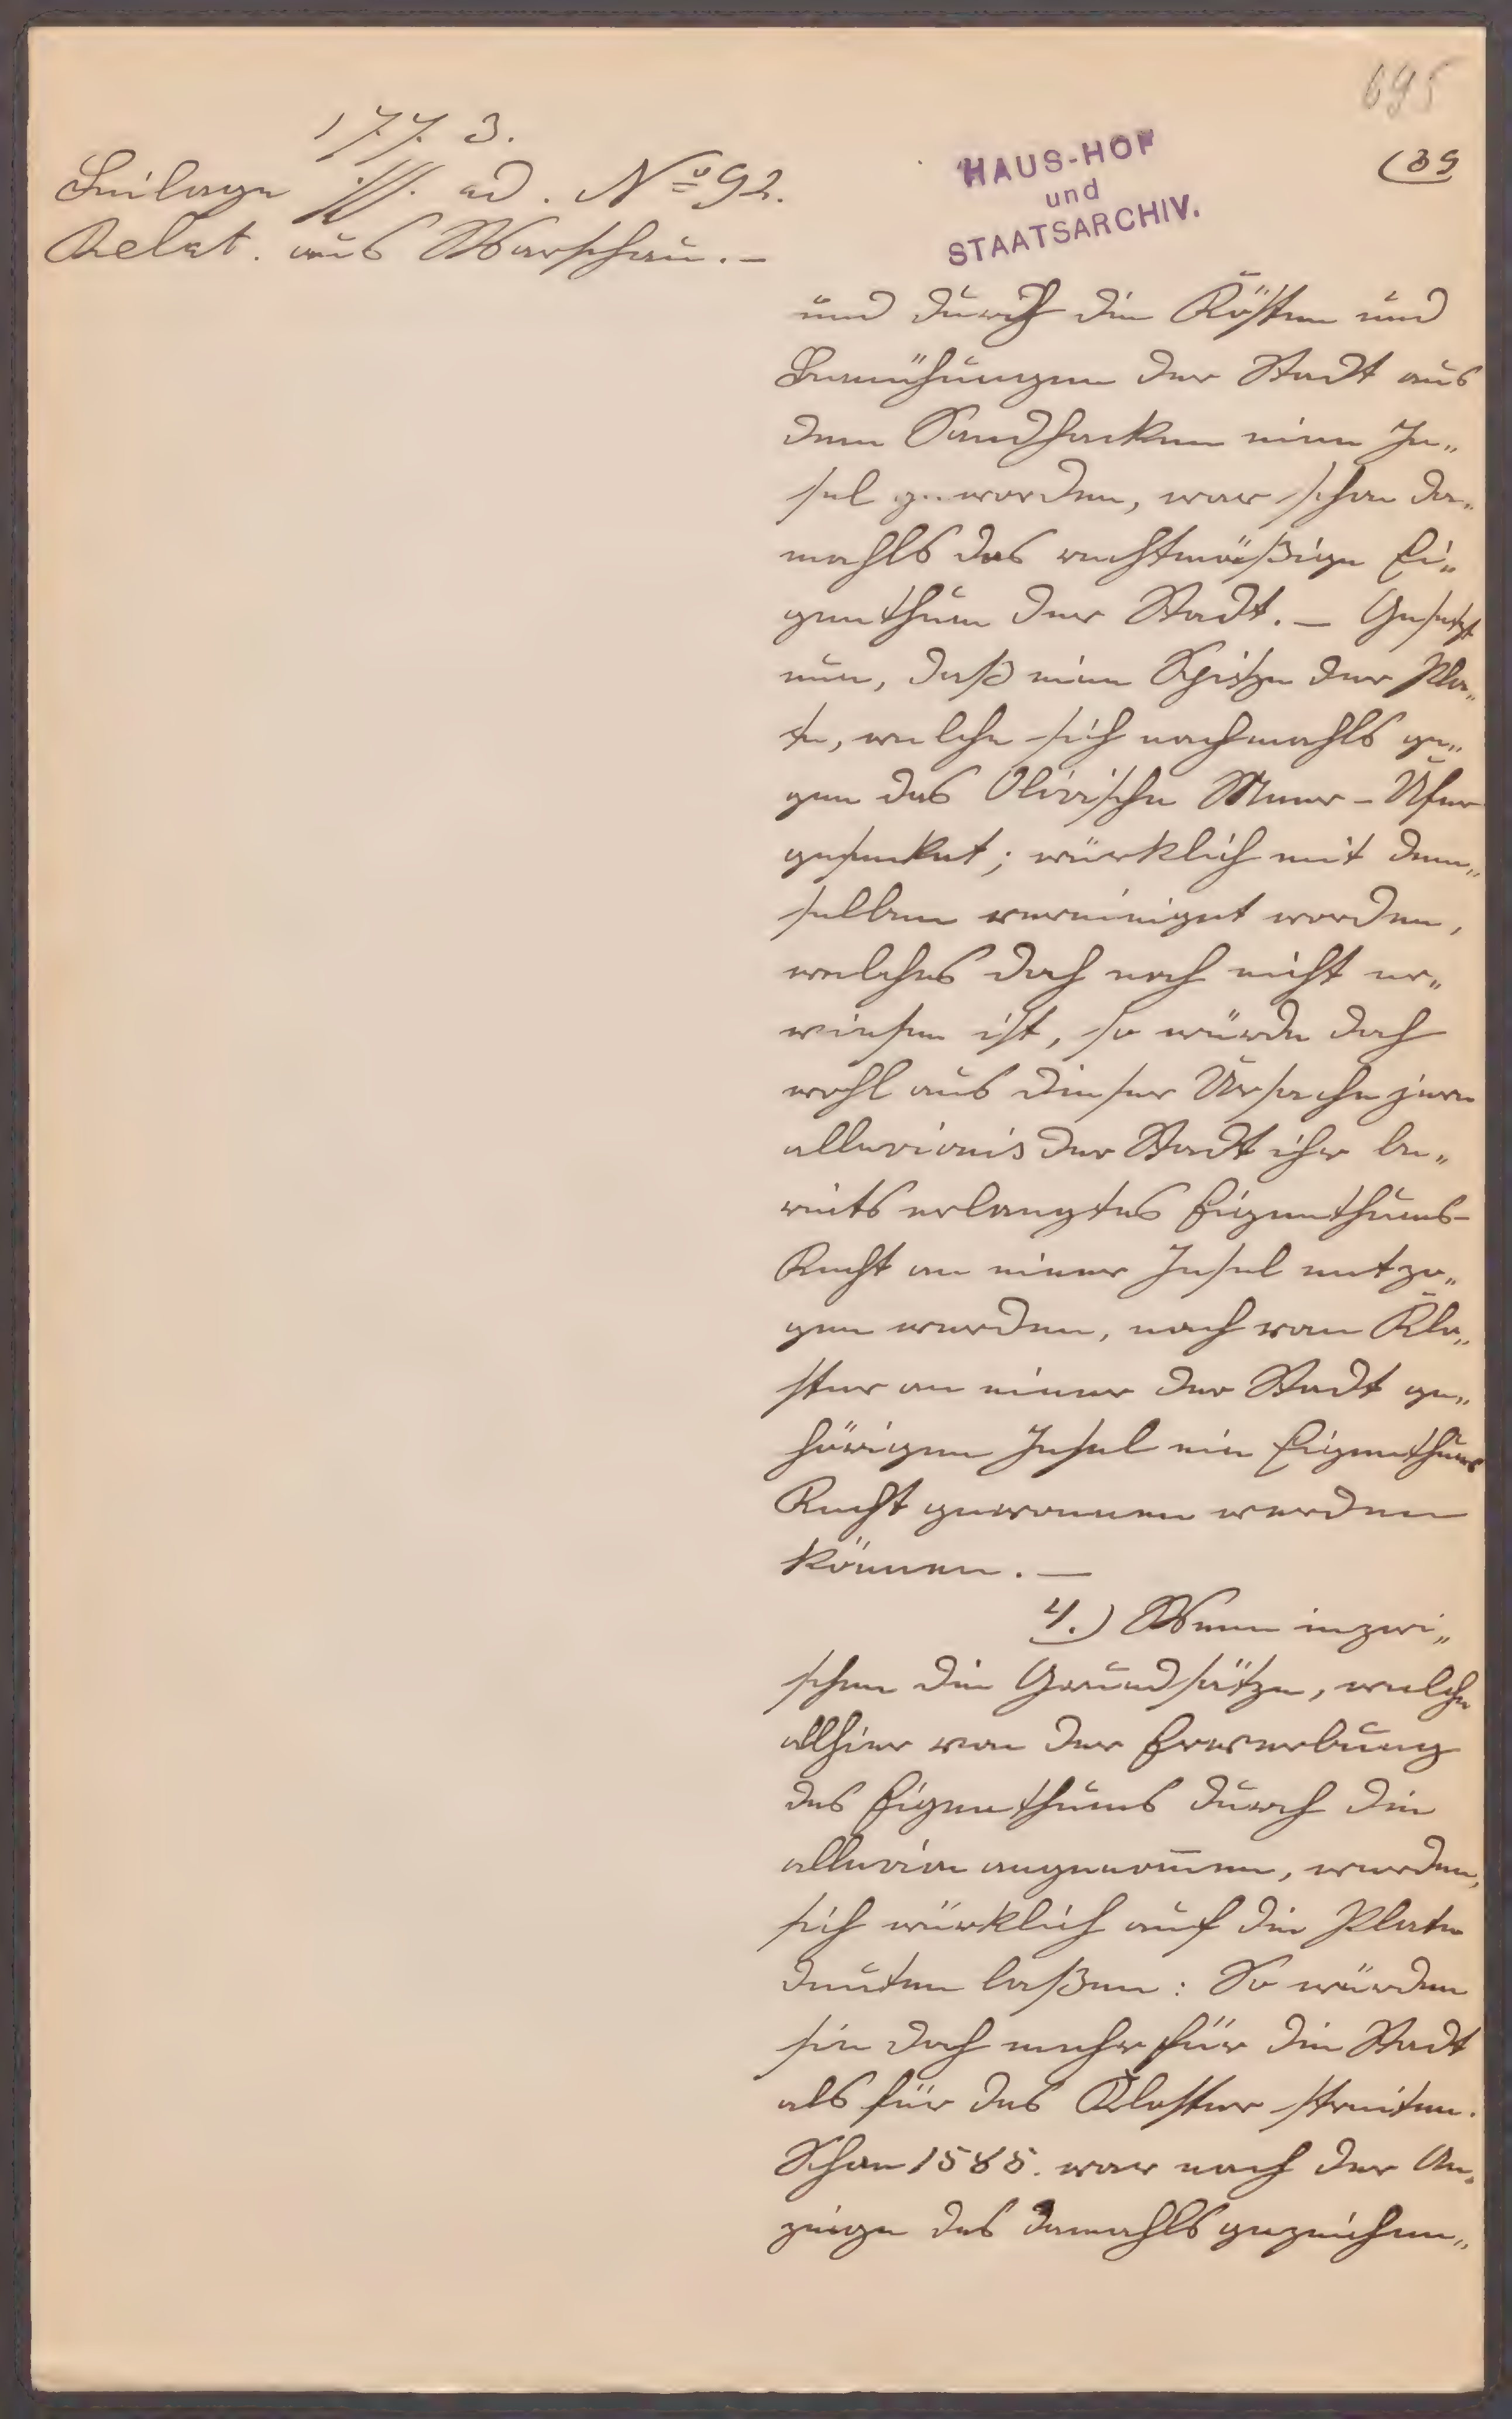 695
(39
1773.
Beilage ad. No 92.
Relat. aus Warschau. –
HAUS-HOF
und
STAATSARCHIV.
und durch die Kösten und
Bemühungen der Stadt aus
dem Sandhacken eine In„
sel geworden, war schon da„
mahls das rechtmäßige Ei„
genthum der Stadt. – Gesetzt
nun, daß eine Spitze der Pla„
te, welche sich nachmahls ge„
gen das Olivische Meer-Ufer
gesenket; würklich mit dem„
selben vereiniget worden,
welches doch noch nicht er„
wiesen ist, so würde doch
wohl aus dieser Ursache jure
alluvionis der Stadt ihr be„
reits erlangtes Eigenthums-
Recht an einer Insel entzo„
gen werden, noch vom Klo„
ster an einer der Stadt ge„
hörigen Insel ein Eigenthums
Recht gewonnen werden
können. —
4.) Wenn inzwi„
schen die Grundsätze, welche
allhier von der Erwerbung
des Eigenthums durch die
alluvion angenom̄en, werden,
sich würklich auf die Plate
deuten laßen: So würden
sie doch mehr für die Stadt
als für das Kloster streiten.
Schon 1585. war nach der An„
zeige des damahls gezeichne„